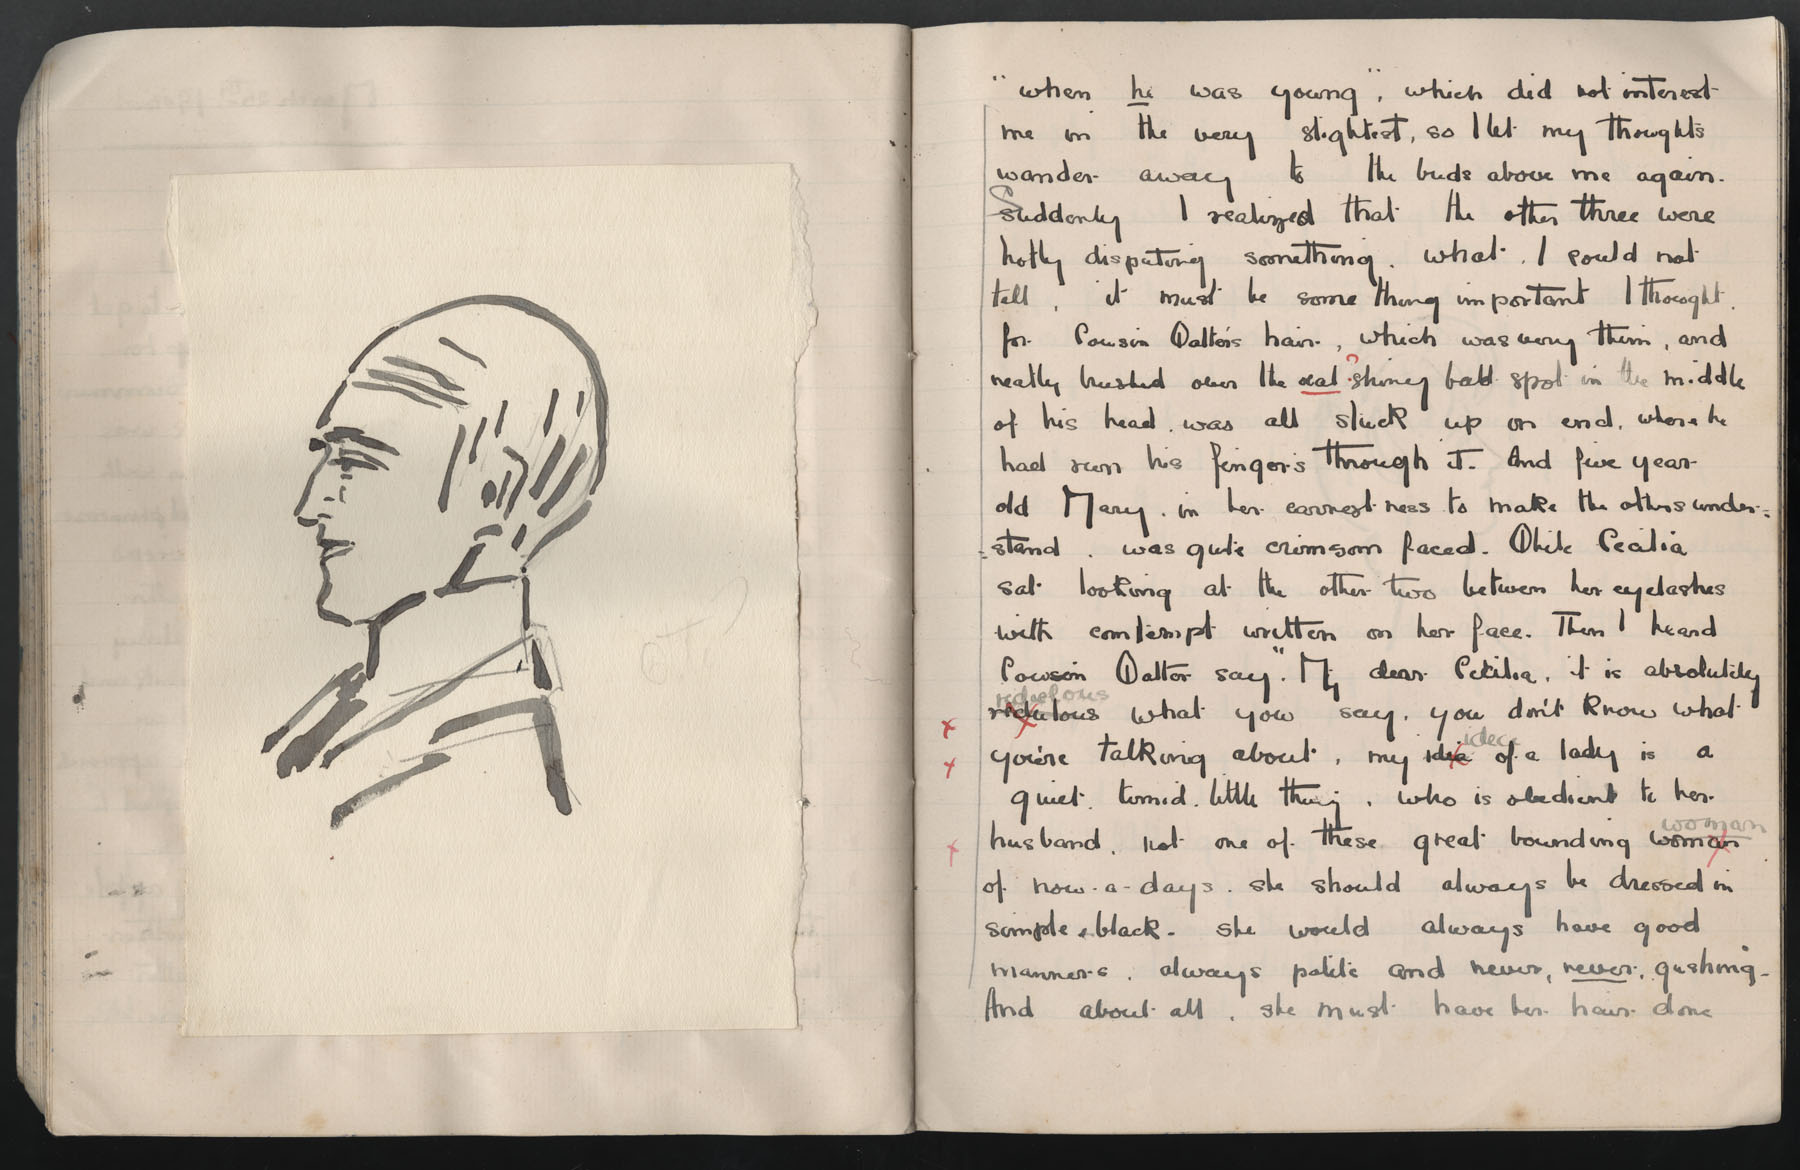 "when he was young", which did not interest
me in the very slightest, so I let my thoughts
wander away to the buds above me again.
Suddenly I realized that the other three were
hotly disputing something. what. I could not
tell, it must be some thing important I thought,
for Cousin Walter's hair, which was very thin, and
neatly brushed over the shiney bald spot in the middle
of his head, was all stuck up on end, where he
had run his fingers through it. And five year
old Mary, in her earnestness to make the others under=
=stand, was quite crimson faced. While Cecilia
sat looking at the other two between her eyelashes
with contempt written on her face. Then I heard
Cousin Walter say. "My dear Cecilia, it is absolutely
ridiculous
ridulous what you say, you don't know what
idea
you're talking about, my idia of a lady is a
quiet, timid, little thing, who is obedient to her
woman
husband, not one of these great bounding woman
of now-a-days. she should always be dressed in
simple black. she would always have good
manners, always polite and never, never, gushing.
And about all, she must have her hair done